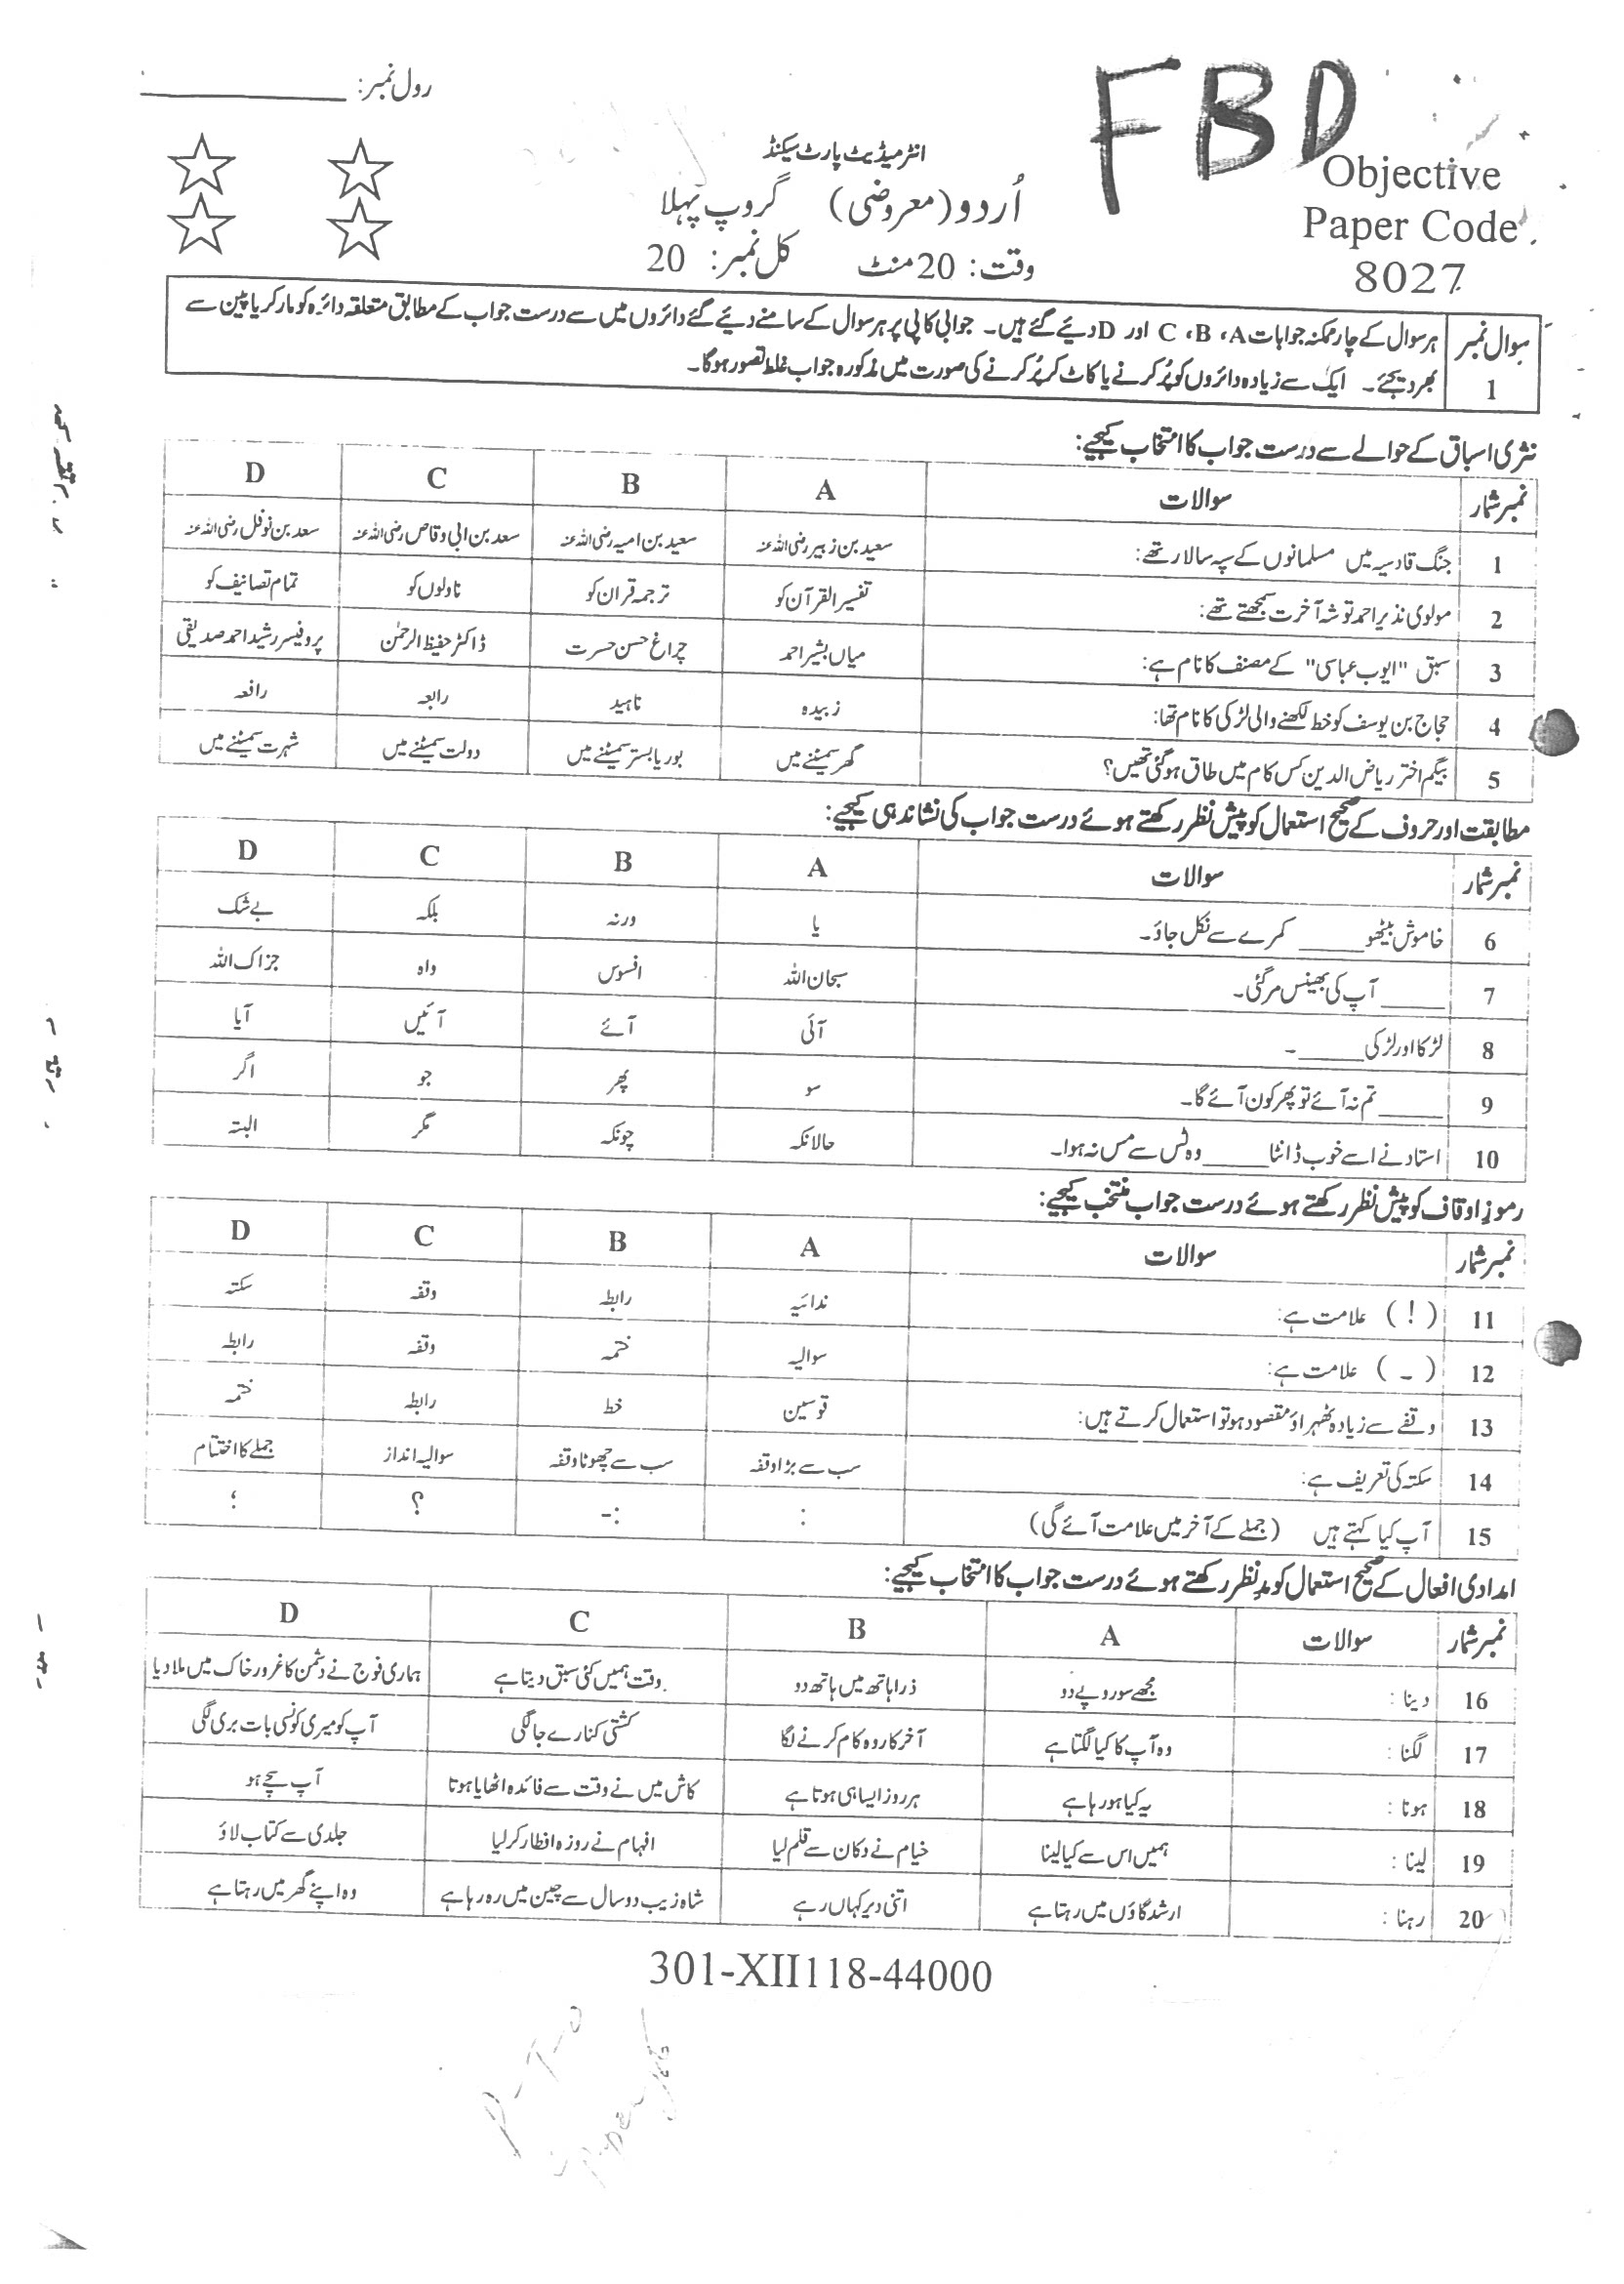 رول نمبر: ____________
FBD
انٹرمیڈیٹ پارٹ سیکنڈ
Objective
اُردو (معروضی) گروپ پہلا
Paper Code
وقت: 20 منٹ کل نمبر: 20
8027
سوال نمبر 1
ہر سوال کے چار ممکنہ جوابات A، B، C اور D دیئے گئے ہیں۔ جوابی کاپی پر ہر سوال کے سامنے دیئے گئے دائروں میں سے درست جواب کے مطابق متعلقہ دائرہ کو مارکر یا پین سے
بھر دیجئے۔ ایک سے زیادہ دائروں کو پُر کرنے یا کاٹ کر پُر کرنے کی صورت میں مذکورہ جواب غلط تصور ہوگا۔
نثری اسباق کے حوالے سے درست جواب کا انتخاب کیجیے:
نمبر شمار سوالات A B C D
1 جنگ قادسیہ میں مسلمانوں کے سپہ سالار تھے: سعید بن زبیر رضی اللہ عنہ سعید بن امیہ رضی اللہ عنہ سعد بن ابی وقاص رضی اللہ عنہ سعد بن نوفل رضی اللہ عنہ
2 مولوی نذیر احمد توشہ آخرت سمجھتے تھے: تفسیر القرآن کو ترجمہ قران کو ناولوں کو تمام تصانیف کو
3 سبق "ایوب عباسی" کے مصنف کا نام ہے: میاں بشیر احمد چراغ حسن حسرت ڈاکٹر حفیظ الرحمٰن پروفیسر رشید احمد صدیقی
4 حجاج بن یوسف کو خط لکھنے والی لڑکی کا نام تھا: زبیدہ ناہید رابعہ رافعہ
5 بیگم اختر ریاض الدین کس کام میں طاق ہوگئی تھیں؟ گھر سمیٹنے میں بوریا بستر سمیٹنے میں دولت سمیٹنے میں شہرت سمیٹنے میں
مطابقت اور حروف کے صحیح استعمال کو پیش نظر رکھتے ہوئے درست جواب کی نشاندہی کیجیے:
نمبر شمار سوالات A B C D
6 خاموش بیٹھو _____ کمرے سے نکل جاؤ۔ یا ورنہ بلکہ بے شک
7 _____ آپ کی بھینس مرگئی۔ سبحان اللہ افسوس واہ جزاک اللہ
8 لڑکا اور لڑکی _____۔ آئی آئے آئیں آیا
9 _____ تم نہ آئے تو پھر کون آئے گا۔ سو پھر جو اگر
10 استاد نے اسے خوب ڈانٹا _____ وہ ٹس سے مس نہ ہوا۔ حالانکہ چونکہ مگر البتہ
رموز اوقاف کو پیش نظر رکھتے ہوئے درست جواب منتخب کیجیے:
نمبر شمار سوالات A B C D
11 ( ! ) علامت ہے: ندائیہ رابطہ وقفہ سکتہ
12 ( ۔ ) علامت ہے: سوالیہ ختمہ وقفہ رابطہ
13 وقفے سے زیادہ ٹھہراؤ مقصود ہو تو استعمال کرتے ہیں: قوسین خط رابطہ ختمہ
14 سکتہ کی تعریف ہے: سب سے بڑا وقفہ سب سے چھوٹا وقفہ سوالیہ انداز جملے کا اختتام
15 آپ کیا کہتے ہیں (جملے کے آخر میں علامت آئے گی) : :- ؟ ؛
امدادی افعال کے صحیح استعمال کو مدِنظر رکھتے ہوئے درست جواب کا انتخاب کیجیے:
نمبر شمار سوالات A B C D
16 دینا : مجھے سو روپے دو ذرا ہاتھ میں ہاتھ دو وقت ہمیں کئی سبق دیتا ہے ہماری فوج نے دشمن کا غرور خاک میں ملا دیا
17 لگنا : وہ آپ کا کیا لگتا ہے آخر کار وہ کام کرنے لگا کشتی کنارے جا لگی آپ کو میری کونسی بات بری لگی
18 ہونا : یہ کیا ہو رہا ہے ہر روز ایسا ہی ہوتا ہے کاش میں نے وقت سے فائدہ اٹھایا ہوتا آپ سچے ہو
19 لینا : ہمیں اس سے کیا لینا خیام نے دکان سے قلم لیا افہام نے روزہ افطار کر لیا جلدی سے کتاب لاؤ
20 رہنا : ارشد گاؤں میں رہتا ہے اتنی دیر کہاں رہے شاہ زیب دو سال سے چین میں رہ رہا ہے وہ اپنے گھر میں رہتا ہے
301-XII118-44000
P-T-O